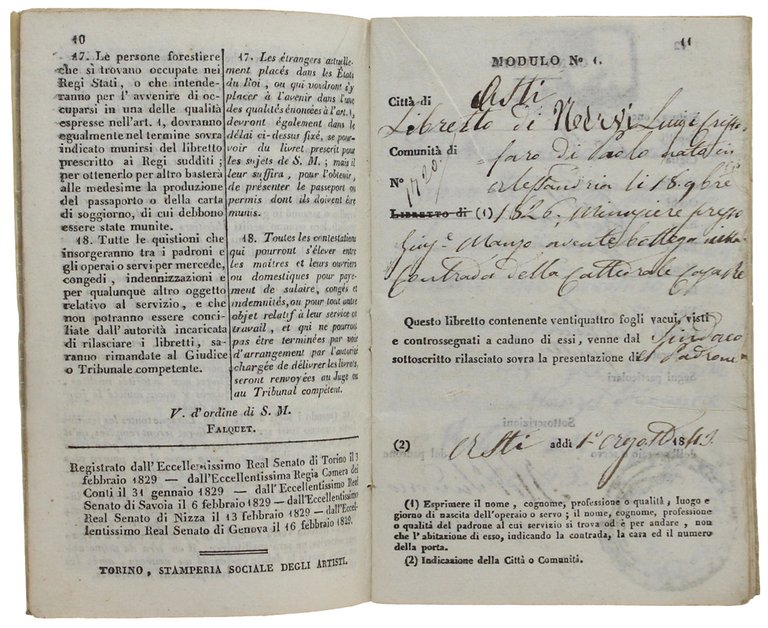 10
17. Le persone forestiere
che sì trovano occupate nei
Regi Stati, o che intende-
ranno per l'avvenire di oc-
cuparsi in una delle qualità
espresse nell'art. 1, dovranno
egualmente nel termine sovra
indicato munirsi del libretto
prescritto ai Regi sudditi;
per ottenerlo per altro basterà
alle medesime la produzione
del passaporto o della carta
di soggiorno, di cui debbono
essere state munite.
18. Tutte le quistioni che
insorgeranno tra i padroni e
gli operai o servi per mercede,
congedi, indennizzazioni e
per qualunque altro oggetto
relativo al servizio, e che
non potranno essere conci-
liate dall'autorità incaricata
di rilasciare i libretti, sa-
ranno rimandate al Giudice
o Tribunale competente.
17. Les étrangers actuelle-
ment placés dans les États
du Roi, ou qui voudront s'y
placer à l'avenir dans l'une
des qualités énoncées à l'art. 1,
devront également dans le
délai ci-dessus fixé, se pour-
voir du livret prescrit pour
les sujets de S. M.; mais il
leur suffira, pour l'obtenir,
de présenter le passeport ou
permis dont ils doivent être
munis.
18. Toutes les contestations
qui pourront s'élever entre
les maîtres et leurs ouvriers
ou domestiques pour paye-
ment de salaire, congés et
indemnités, ou pour tout autre
objet relatif à leur service et
travail, et qui ne pourront
pas être terminées par voie
d'arrangement par l'autorité
chargée de délivrer les livrets,
seront renvoyées au Juge ou
au Tribunal compétent.
V. d'ordine di S. M.
FALQUET.
Registrato dall'Eccellentissimo Real Senato di Torino il 3
febbraio 1829 — dall'Eccellentissima Regia Camera dei
Conti il 31 gennaio 1829 — dall'Eccellentissimo Real
Senato di Savoia il 6 febbraio 1829 — dall'Eccellentissimo
Real Senato di Nizza il 13 febbraio 1829 — dall'Eccel-
lentissimo Real Senato di Genova il 16 febbraio 1829.
TORINO, STAMPERIA SOCIALE DEGLI ARTISTI.
11
MODULO No 1.
Città di Asti
Libretto di Nervi Luigi
Comunità di di Paolo nato in
No 1720. Alessandria li 18 9bre
LIBRETTO di (1) 1826, Minusiere presso
Giuse Manzo avente bottega nella
Contrada della Cattedrale
Questo libretto contenente ventiquattro fogli vacui, visti
e controssegnati a caduno di essi, venne dal Sindaco
sottoscritto rilasciato sovra la presentazione del Padrone
Segni particolari
Sottoscrizioni
(2) Asti addì 1o Agosto 1843.
(1) Esprimere il nome, cognome, professione o qualità, luogo e
giorno di nascita dell'operaio o servo; il nome, cognome, professione
o qualità del padrone al cui servizio si trova od è per andare, non
che l'abitazione di esso, indicando la contrada, la casa ed il numero
della porta.
(2) Indicazione della Città o Comunità.